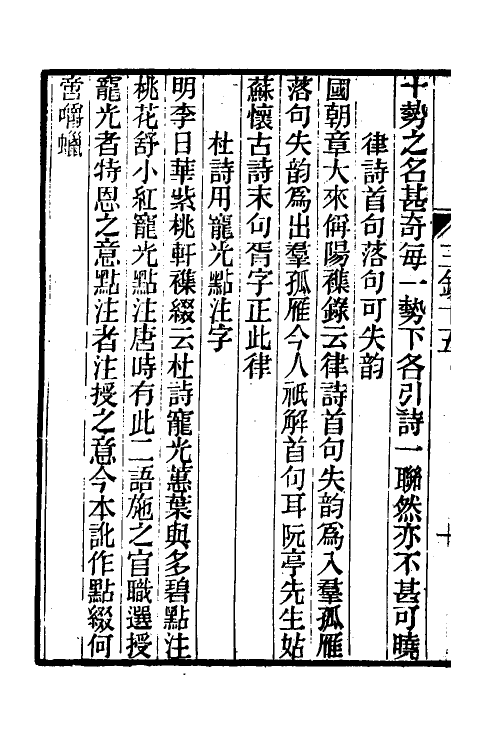 十勢之名甚奇每一勢下各引詩一聯然亦不甚可曉
律詩首句落句可失韵
國朝章大來偁陽雜錄云律詩首句失韵爲入羣孤雁
落句失韵爲出羣孤雁今人祇解首句耳阮亭先生姑
蘇懷古詩末句胥字正此律
杜詩用寵光點注字
明李日華紫桃軒雜綴云杜詩寵光蕙葉與多碧點注
桃花舒小紅寵光點注唐時有此二語施之官職選授
寵光者特恩之意點注者注授之意今本訛作點綴何
啻嚼蠟